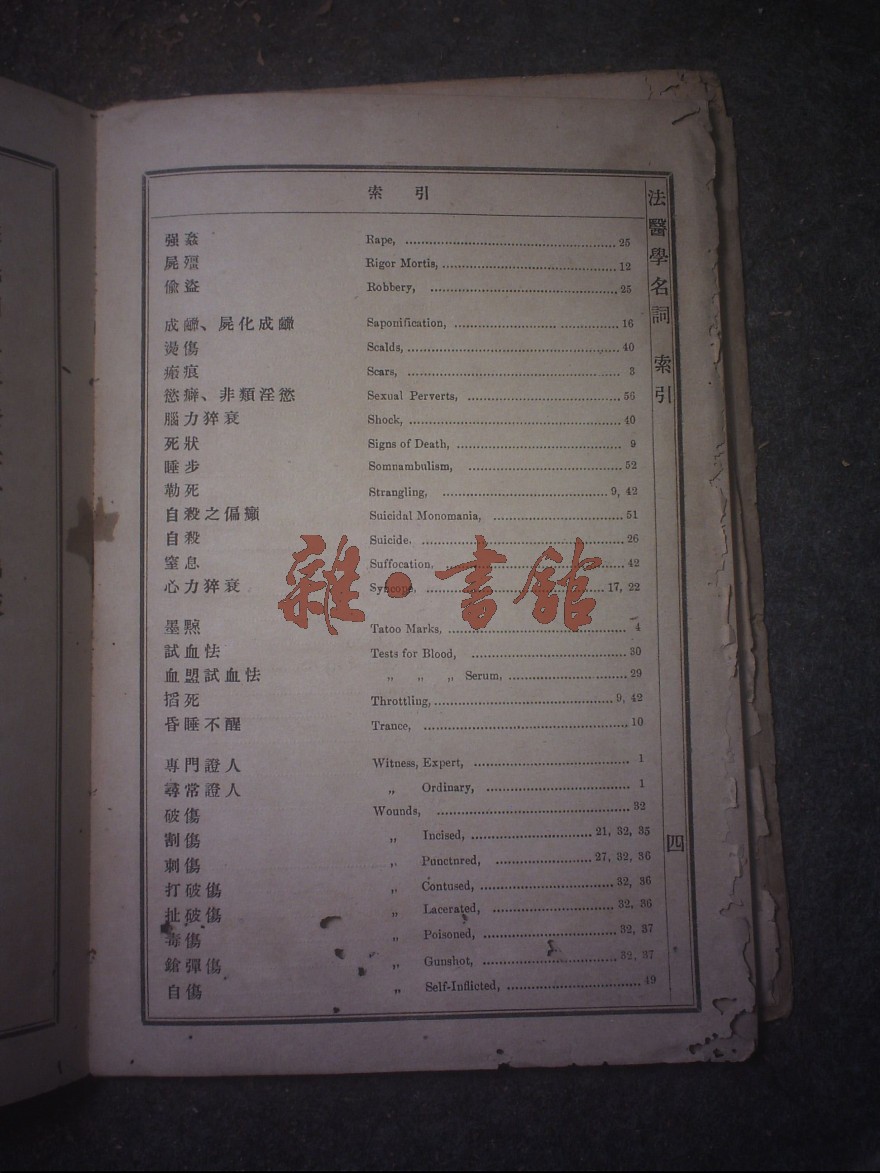 索引
强姦 Rape, 25
屍殭 Rigor Mortis, 12
偷盜 Robbery, 25
成蠟、屍化成蠟 Saponification, 16
燙傷 Scalds, 40
瘢痕 Scars, 3
慾癖、非類淫慾 Sexual Perverts, 56
腦力猝衰 Shock, 40
死狀 Signs of Death, 9
睡步 Somnambulism, 52
勒死 Strangling, 9, 42
自殺之偏癲 Suicidal Monomania, 51
自殺 Suicide, 26
窒息 Suffocation, 42
心力猝衰 Syncope, 17, 22
墨㸃 Tatoo Marks, 4
試血法 Tests for Blood, 30
血盟試血法 „ „ „ Serum, 29
搯死 Throttling, 9, 42
昏睡不醒 Trance, 10
專門證人 Witness, Expert, 1
尋常證人 „ Ordinary, 1
破傷 Wounds, 32
割傷 „ Incised, 21, 32, 35
刺傷 „ Punctured, 27, 32, 36
打破傷 „ Contused, 32, 36
扯破傷 „ Lacerated, 32, 36
毒傷 „ Poisoned, 32, 37
鎗彈傷 „ Gunshot, 32, 37
自傷 „ Self-Inflicted, 49
法醫學名詞 索引
四
雜·書館